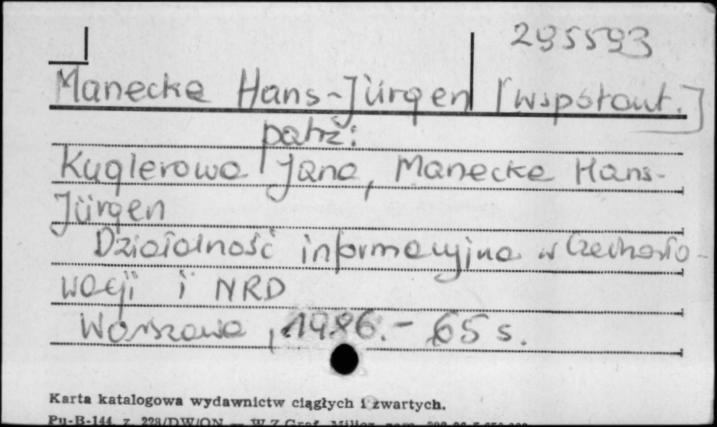 295593
Manecke Hans-Jürgen [współaut.]
patrz:
Kuglerowa Jana, Manecke Hans-
Jürgen
Działalność informacyjna w Czechosło-
wacji i NRD
Warszawa, 1986.- 65 s.
Karta katalogowa wydawnictw ciągłych i zwartych.
Pu-B-144, z. 228/DW/ON — W.Z.Graf.